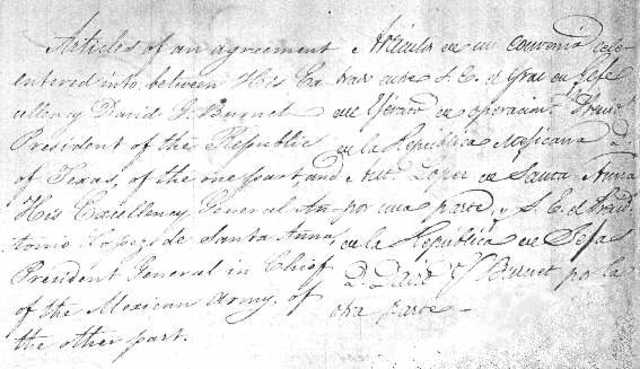 Articles of an agreement
entered into, between His Ex-
cellency David G. Burnet
President of the Republic
of Texas, of the one part, and
His Excellency General An-
tonio Lopez de Santa Anna,
President General in Chief
of the Mexican Army, of
the other part.
Articulos de un convenio cele-
brado entre S. E. el Gral en Gefe
del Ejército de operacion.
de la República Mejicana
Anto. Lopez de Santa Anna
por una parte, y S. E. el
de la República de Tejas
D. David G Burnet por la
otra parte -